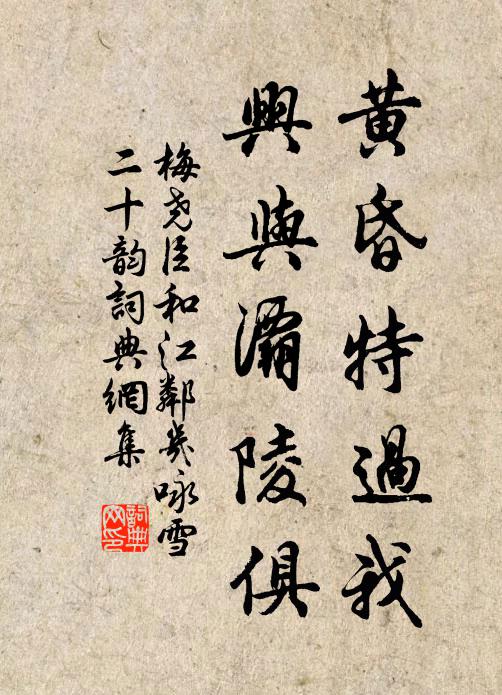 黄昏特過我
興與灞陵俱
梅尧臣和江鄰幾咏雪
二十韵詞典網集
詞典網印